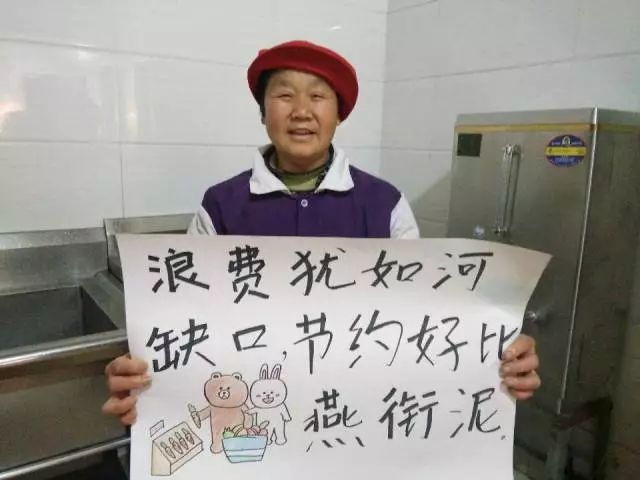 浪费犹如河
缺口,节约好比
燕衔泥.